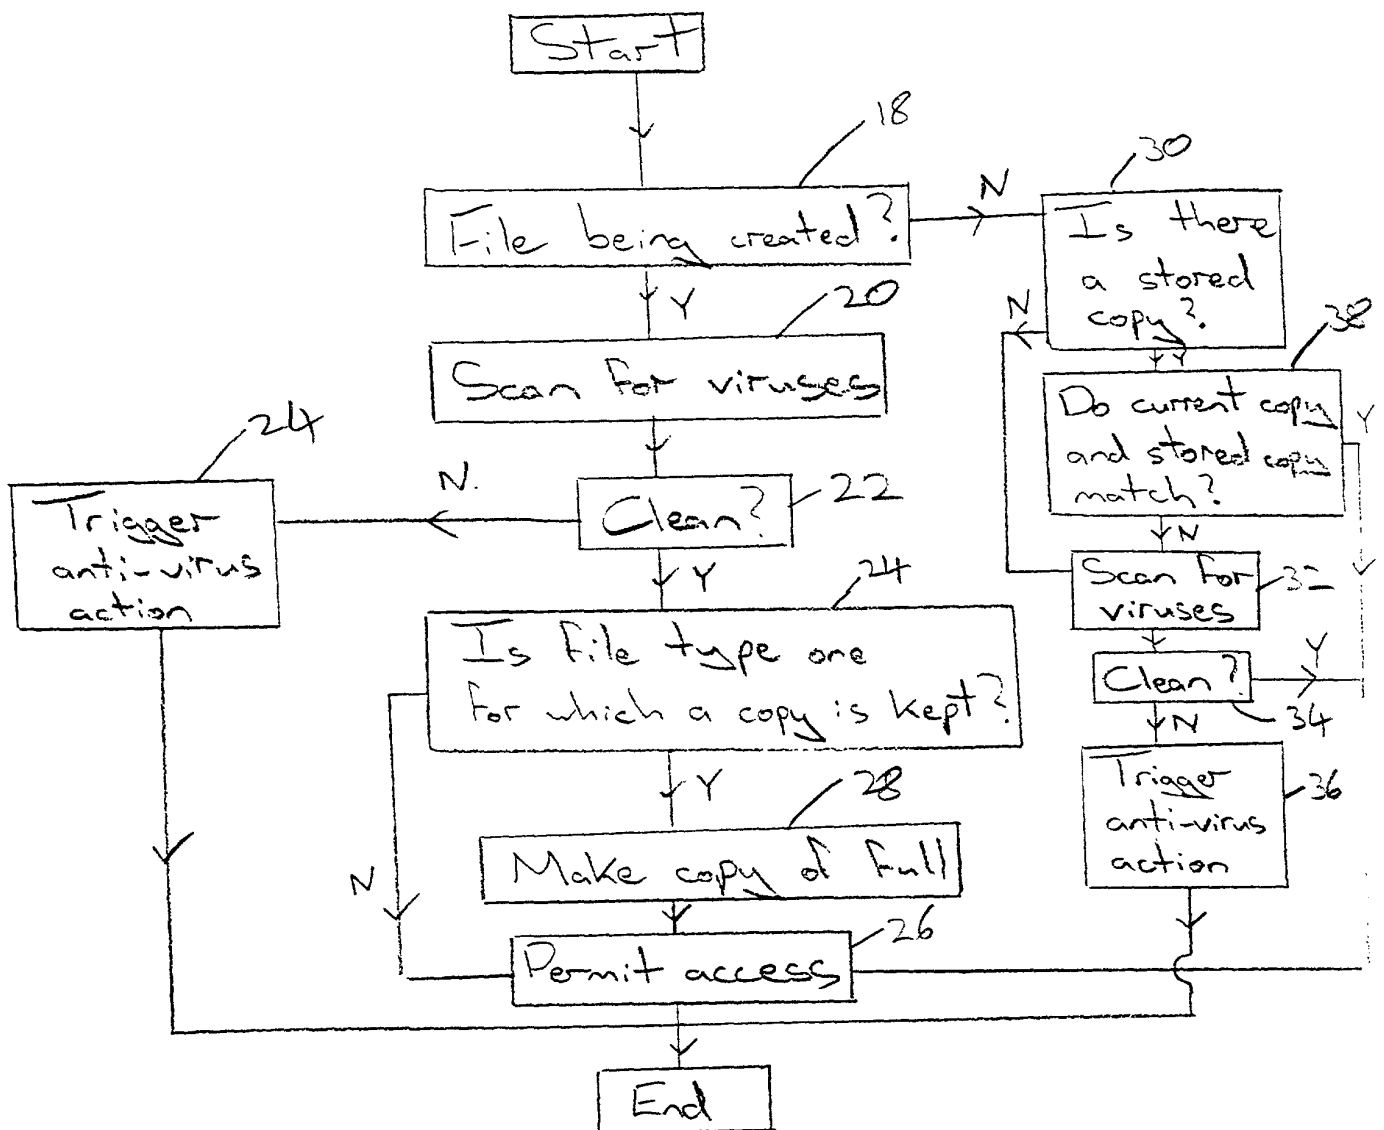 Start
18
File being created?
N
30
Is there
a stored
copy?
N
Y
Y
20
Scan for viruses
38
Do current copy
and stored copy
match?
Y
N
24
Trigger
anti-virus
action
N.
Clean?
22
Y
Scan for
viruses
32
24
Is file type one
for which a copy is kept?
Clean?
Y
34
N
Y
28
Trigger
anti-virus
action
36
Make copy of full
N
26
Permit access
End